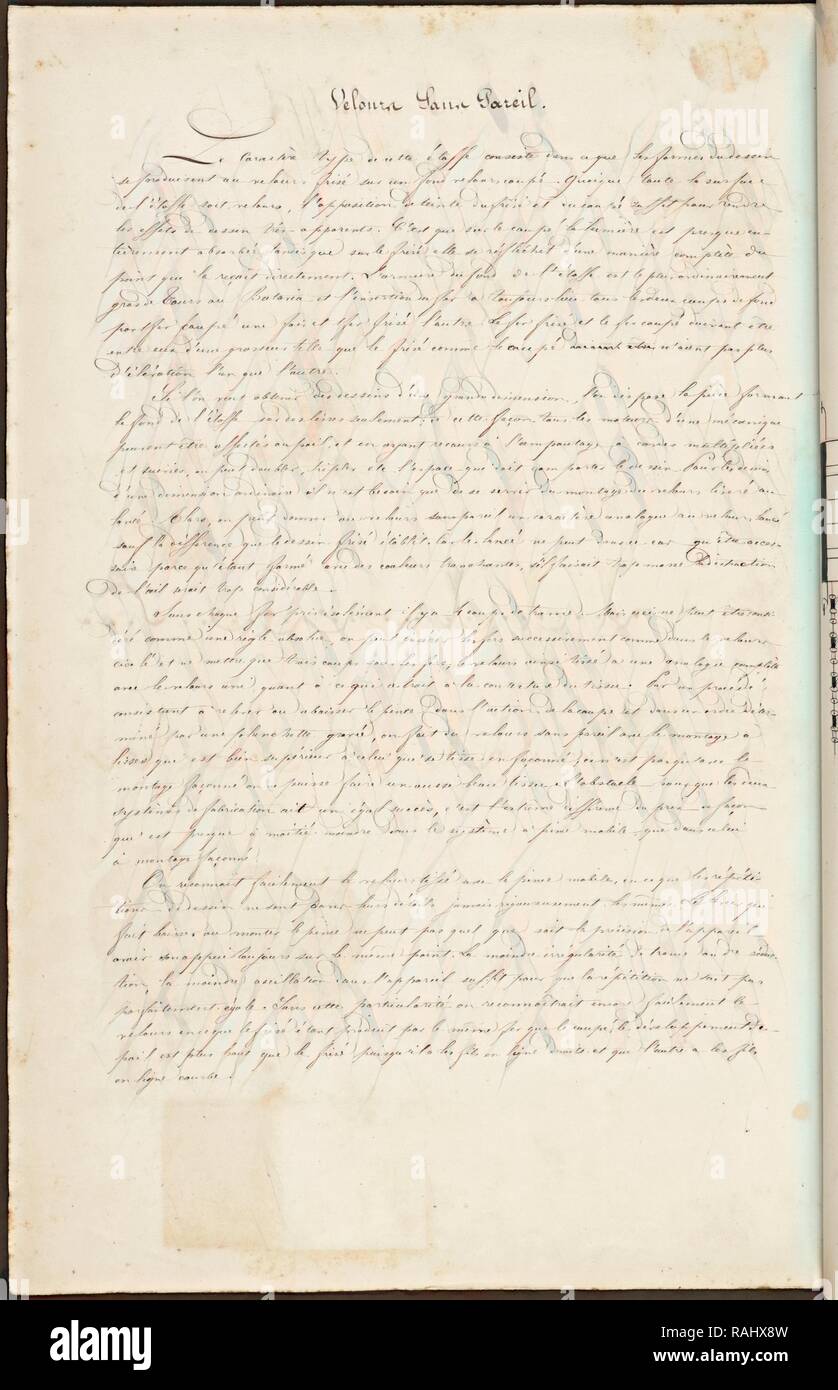 Velours Sans Pareil.
Le Caractère type de cette étoffe consiste dans ce que les formes du dessin
se produisent au velours frisé sur un fond velours coupé. Quoique toute la surface
de l'étoffe soit velours, l'opposition de teinte du frisé et du coupé suffit pour rendre
les effets de dessin très apparents. C'est que sur le coupé la lumière est presque en-
tièrement absorbée tandis que sur le frisé elle se réfléchit d'une manière complète du
point qui la reçoit directement. L'armure du fond de l'étoffe est le plus ordinairement
gros de Tours ou Batavia et l'insertion du fer a toujours lieu tous les deux coups de fond
par fer coupé une fois et fer frisé l'autre. Le fer frisé et le fer coupé doivent être
entre eux d'une grosseur telle que le frisé comme le coupé n'aient pas plus
d'élévation l'un que l'autre.
Si l'on veut obtenir des dessins d'une grande dimension, l'on dispose la pièce formant
le fond de l'étoffe sur des lisses seulement; de cette façon tous les moteurs d'une mécanique
peuvent être affectés au poil, et en ayant recours à l'empoutage à cordes multipliées
et suivies, on peut doubler, tripler etc l'espace que doit comporter le dessin. Pour les dessins
d'une dimension ordinaire il n'est besoin que de se servir du montage du velours liséré ou
lancé. Alors, on peut donner au velours sans pareil un caractère analogue au velours lancé
sauf la différence que le dessin frisé établit. Car le lancé ne peut donner car qu'être acces-
soire parce qu'étant formé avec des couleurs tranchantes, s'il faisait trop masse la distraction
de l'œil serait trop considérable.
Sous chaque fer pris isolément il y a 2 coups de trame. Mais ceci ne peut être consi-
déré comme une règle absolue, on peut insérer les fers successivement comme dans le velours
ciselé et ne mettre que trois coups sous les fers, le velours ainsi tissé a une analogie complète
avec le velours uni quant à ce qui a trait à la contexture du tissu. Par un procédé
consistant à relever ou abaisser le peine dans l'action de la coupe et dans un ordre déter-
miné par une planchette gravée, on fait du velours sans pareil avec le montage à
lisses qui est bien supérieur à celui qui se tisse en façonné; ce n'est pas qu'avec le
montage façonné on ne puisse faire un aussi beau tissu. L'obstacle pour que les deux
systèmes de fabrication ait un égal succès, c'est l'extrême différence du prix de façon
qui est presque à moitié moindre dans le système à peine mobile que dans celui
à montage façonné.
On reconnaît facilement le velours tissé avec le peine mobile, en ce que les répéti-
tions de dessin ne sont dans leurs détails jamais rigoureusement les mêmes. Le bras qui
fait baisser ou monter le peine ne peut pas quel que soit la précision de l'appareil
avoir son appui toujours sur le même point. La moindre irrégularité de trame ou de réduc-
tion, la moindre oscillation dans l'appareil suffit pour que la répétition ne soit pas
parfaitement égale. Sans cette particularité on reconnaîtrait encore facilement le
velours en ce que le frisé étant produit par le même fer que le coupé, le développement du
poil est plus haut que le frisé puisqu'il a les fils en ligne droite et que l'autre a les fils
en ligne courbe.
alamy
RAHX8W
www.alamy.com